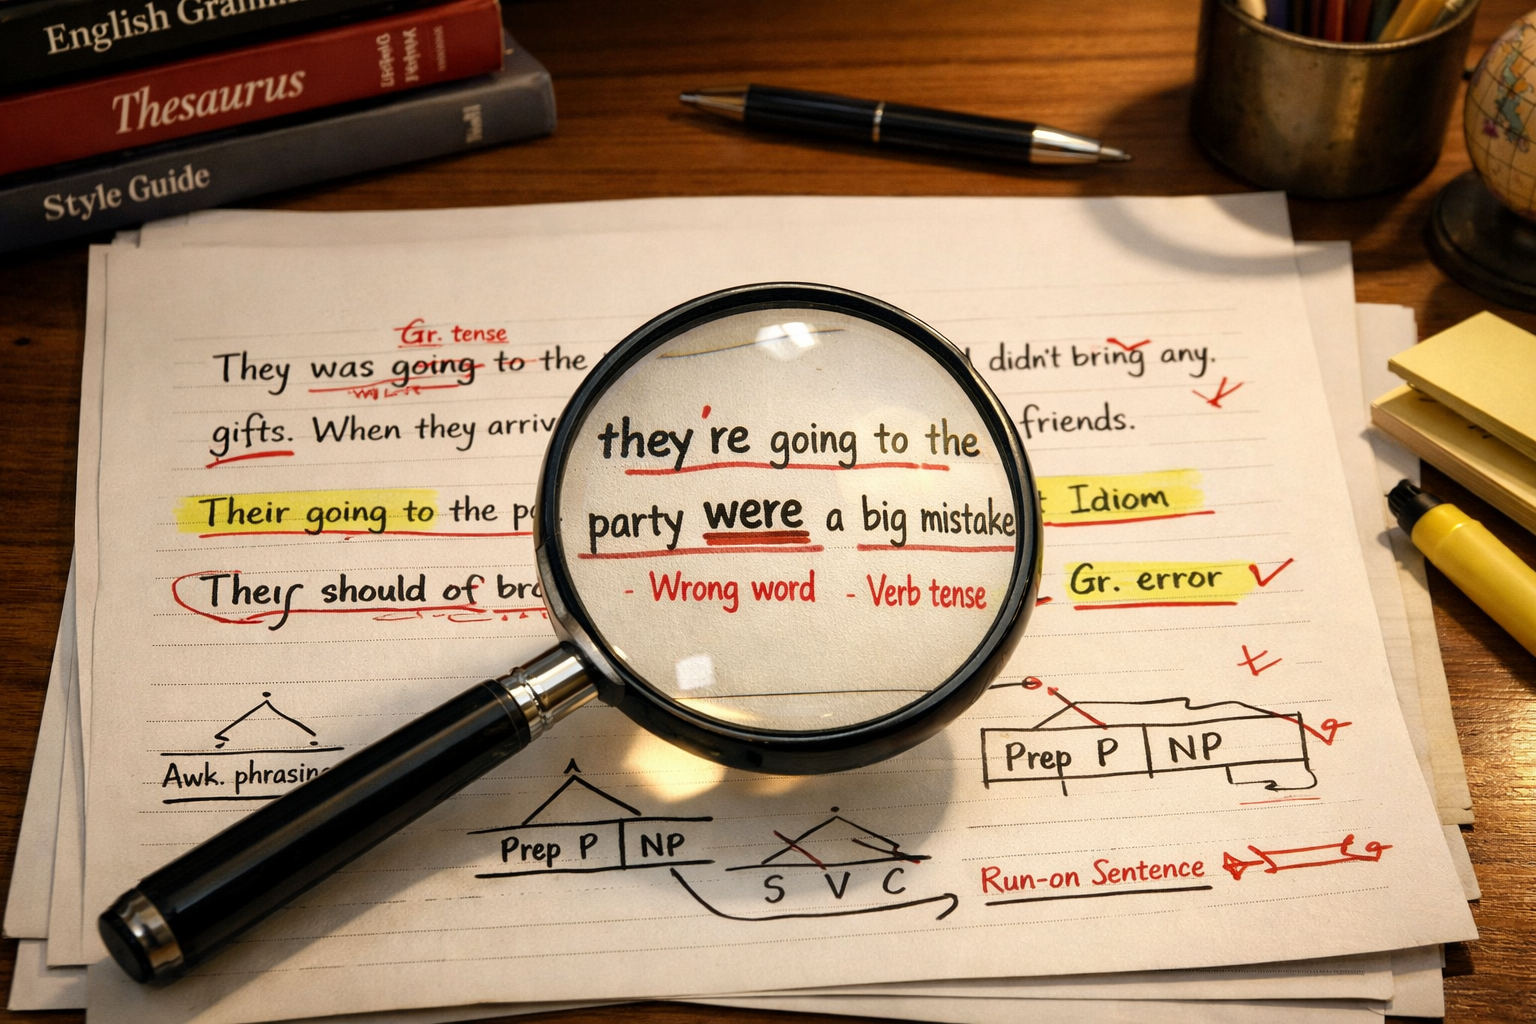 English Gramm
Thesaurus
Style Guide
Gr. tense
They was going to the
didn't bring any.
gifts. When they arriv
friends.
they're going to the
Their going to the po
Idiom
party were a big mistake
should of bro
Gr. error
- Wrong word - Verb tense
Awk. phrasing
Prep P NP
Prep P NP
S V C
Run-on Sentence